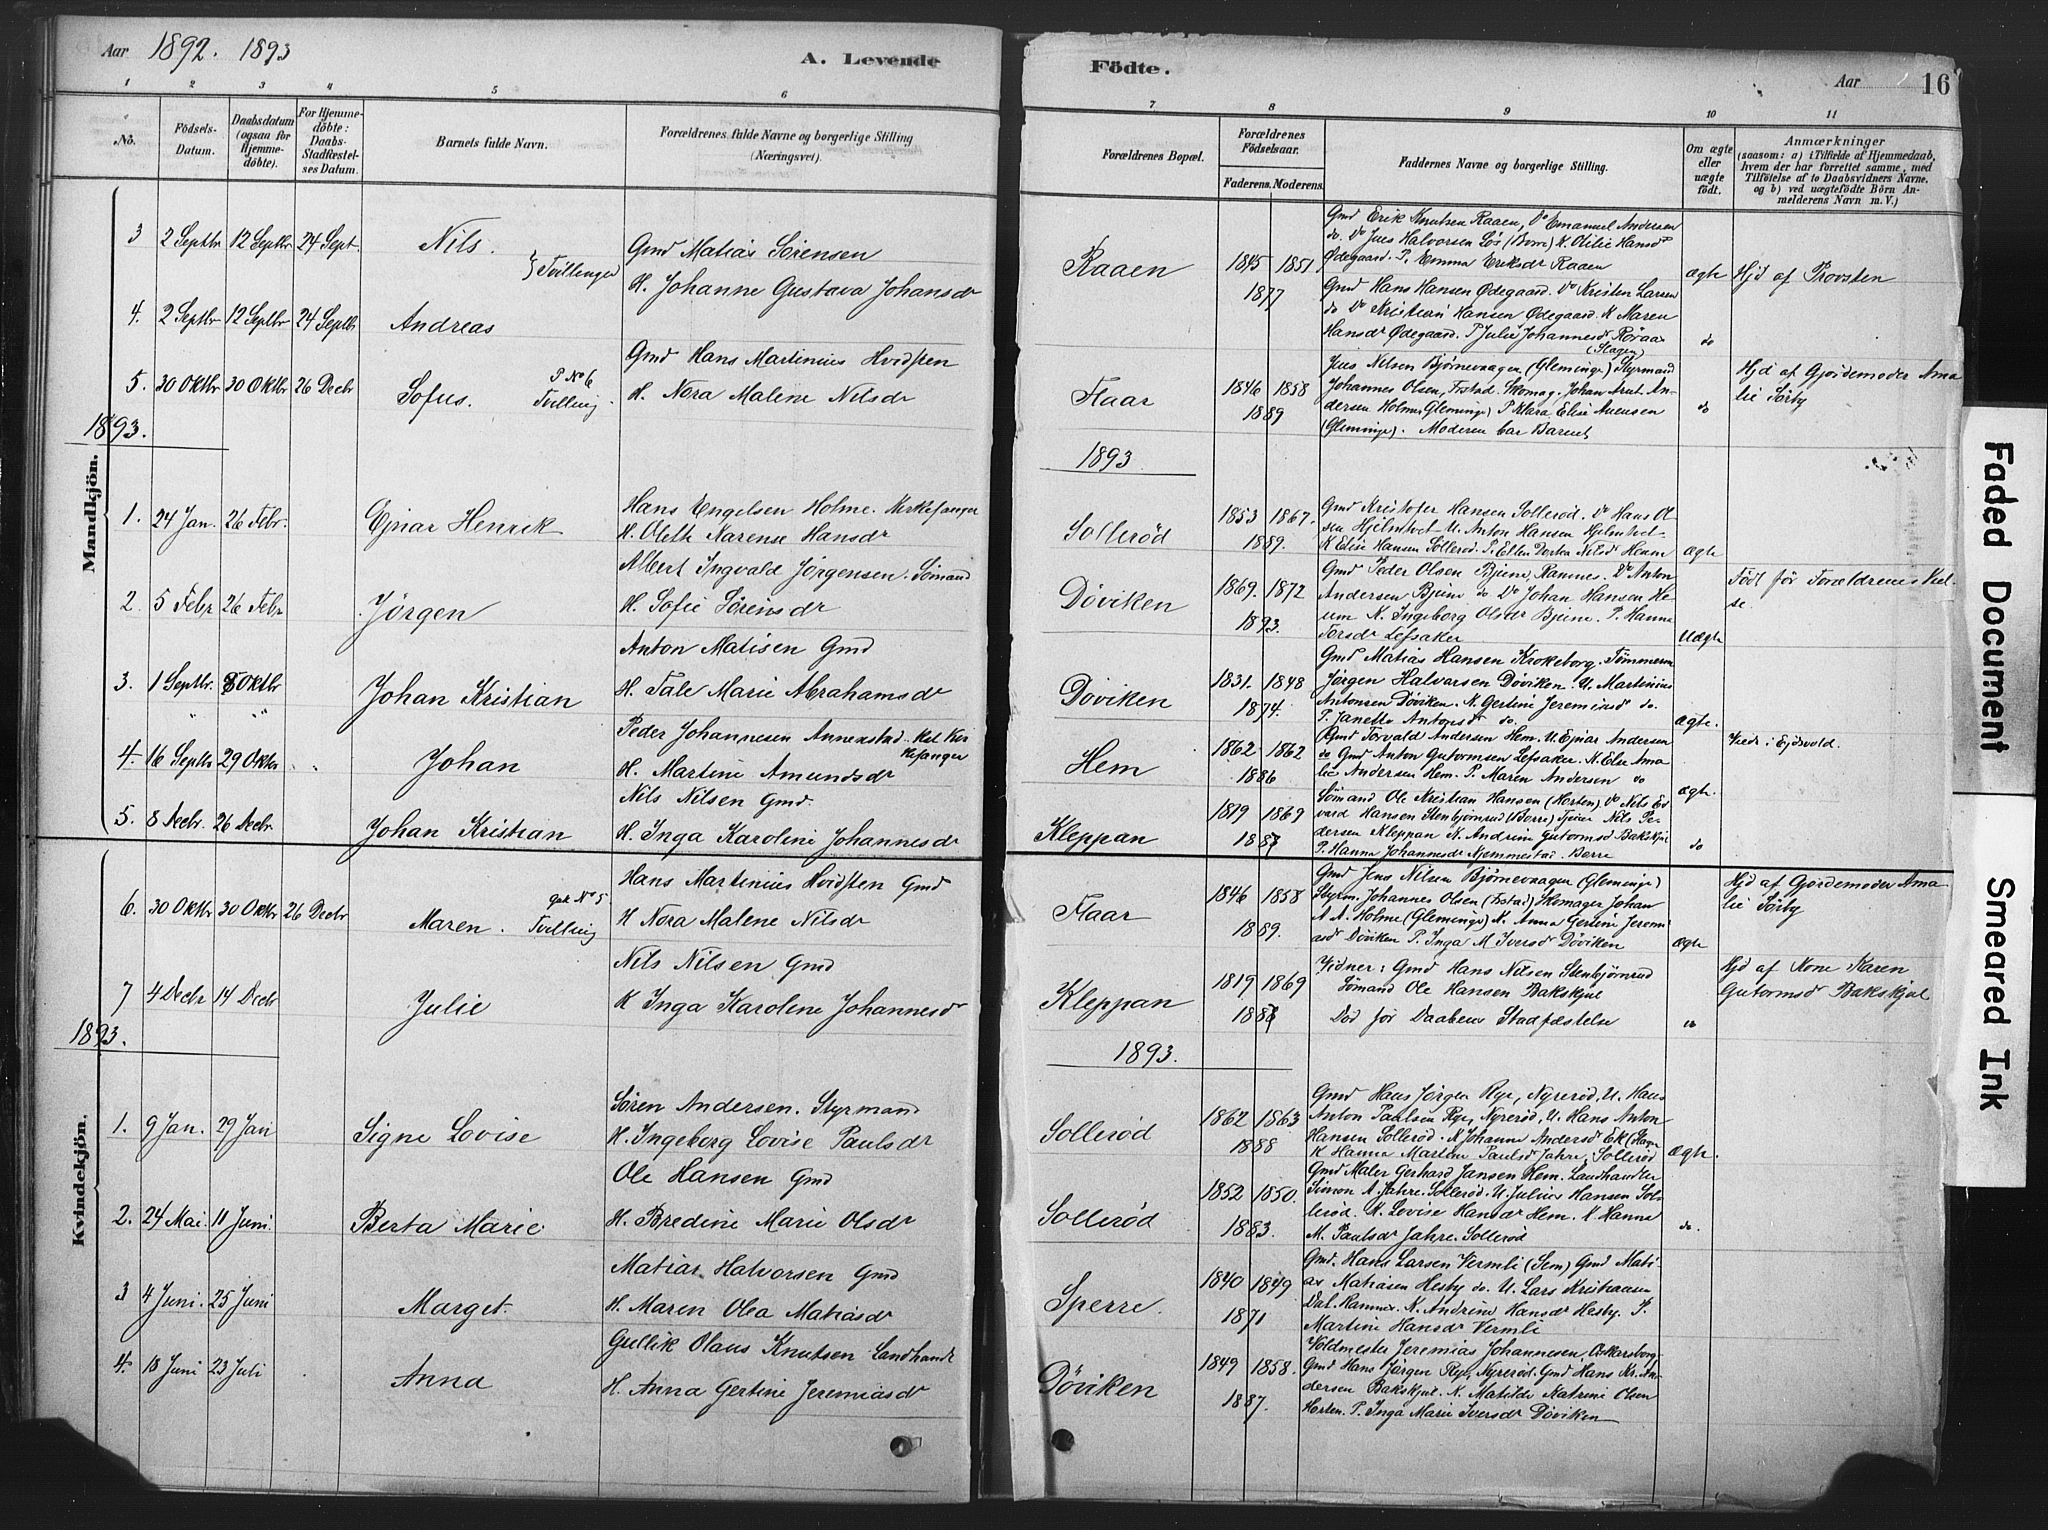 Aar 1892. 1893
A. Levende
Födte.
Aar 16
1 2 3 4 5 6 7 8 9 10 11
No.
Födsels-Datum.
Daabsdatum (ogsaa for Hjemmedöbte).
For Hjemmedöbte: Daabs-Stadfæstelses Datum.
Barnets fulde Navn.
Forældrenes fulde Navne og borgerlige Stilling (Næringsvei).
Forældrenes Bopæl.
Forældrenes Födselsaar.
Faderens. Moderens.
Faddernes Navne og borgerlige Stilling.
Om ægte eller uægte födt.
Anmærkninger
(saasom: a) i Tilfælde af Hjemmedaab, hvem der har forrettet samme, med Tilföielse af to Daabsvidners Navne, og b) ved uægtefödte Börn Anmelderens Navn m. V.)
Mandkjön.
3 2 Septbr 12 Septbr 24 Sept. Nils. } Tvillinger
Gmd Matias Sörensen
H. Johanne Gustava Johansdr
Raaen 1845 1851 1877
Gmd Erik Knutsen Raaen, Do Emanuel Andersen
do. Do Jens Halvorsen Løs (Borre) K. Otilie Hansdr
Ødegaard. P. Emma Eriksdr Raaen
ægte Hjd af Provsten
4. 2 Septbr 12 Septbr 24 Septb Andreas
Gmd Hans Hansen Ødegaard. Do Kristen Larsen
do Do Kristian Hansen Ødegaard. K Maren
Hansdr Ødegaard. P Julie Johannesdr Röraas
(Slagen)
do
5. 30 Oktbr 30 Oktbr 26 Decbr Sofus. P No 6 Tvilling
Gmd Hans Martinius Hvidsten
H. Nora Malene Nilsdr
Flaar 1846 1858 1889
Jens Nilsen Bjørnevaagen (Gleminge) Styrmand
Johannes Olsen, Frstad. Skomag. Johan Arnt An-
dersen Holme (Gleminge) P Klara Elise Avensen
(Gleminge). Moderen bar Barnet
do
Hjd af Gjordemoder Ama
lie Sørby
1893.
1893
1. 24 Jan. 26 Febr. Ejnar Henrik
Hans Engelsen Holme. Kirkesanger
H. Oleth Karense Hansdr
Sollerød 1853 1867. 1889.
Gmd Kristofer Hansen Sollerød. Do Hans Ol-
sen Hjelmtvet U. Anton Hansen Hjelmtvet
K Elise Hansen Sollerød. P. Ellen Dortea Nilsdr Hem
Ægte
2. 5 Febr 26 Febr Jørgen
Albert Ingvald Jørgensen. Sømand
H. Sofie Sörensdr
Døviken 1869. 1872 1893.
Gmd Peder Olsen Bjune, Ramnes. Do Anton
Andersen Bjune do Do Johan Hansen He-
um K. Ingeborg Olsdr Bjune. P. Hanna
Torsdr Lefsaker
Uægte
Født før Forældrenes Viel-
se.
3. 1 Septbr. 8 Oktbr Johan Kristian
Anton Matisen Gmd
H. Tale Marie Abrahamsdr
Døviken 1831. 1848 1874.
Gmd Matias Hansen Krokeborg. Tømmerm
Jørgen Halvarsen Døviken. U. Martinius
Antonsen Døviken. K. Gertine Jeremiasdr do.
P. Janette Antonsdr do.
Ægte.
4. 16 Septbr 29 Oktbr Johan
Peder Johannesen Annenstad. Kst Kir-
kesanger
H. Martine Amundsdr
Hem 1862 1862 1886
Gmd Torvald Andersen Hem. U. Ejnar Andersen
do Gmd Anton Gutormsen Lefsaker. K. Else Ama
lie Andersen Hem. P. Maren Andersen do
Ægte.
Viede i Ejdsvold.
5. 8 Decbr. 26 Decbr. Johan Kristian
Nils Nilsen Gmd.
H. Inga Karoline Johannesdr
Kleppan 1819 1869 1887
Sømand Ole Kristian Hansen (Horten) Do Nils Ed
vard Hansen Stenbjørnrud (Borre) Tjener Nils Pe-
dersen Kleppan K. Andrine Gutormsd Bakskjul
P. Hanna Johannesdr Njemmestad. Borre
do
Kvindekjön.
6. 30 Oktbr 30 Oktbr 26 Decbr Maren. gak No 5 Tvilling
Hans Martinius Hvidsten Gmd
H Nora Malene Nilsdr
Flaar 1846 1858 1889.
Gmd Jens Nilsen Bjørnevaagen (Gleminge)
Styrm. Johannes Olsen (Frstad) Skomager Johan
A. A. Holme (Gleminge) K. Anna Gertine Jeremi
asdr Døviken P. Inga M. Iversdr Døviken
Ægte
Hjd af Gjordemoder Ama
lie Sørby
7 4 Decbr 14 Decbr Julie
Nils Nilsen Gmd
K Inga Karolene Johannesdr
Kleppan 1819 1869 1887
Vidner: Gmd Hans Nilsen Stenbjørnrud
Sømand Ole Hansen Bakskjul
Død før Daabens Stadfæstelse
Hjd af Kone Karen
Gutormsd Bakskjul
1893.
1893.
1. 9 Jan. 29 Jan Signe Lovise
Sören Andersen. Styrmand
H. Ingeborg Lovise Paulsdr
Sollerød 1862 1863 1888
Gmd Hans Jørgen Rye, Nyrerød, U. Hans
Anton Paulsen Rye, Nyrerød, U. Hans Anton
Hansen Sollerød. K Johanne Andersdr Ek (Slagen
K Hanna Martine Paulsdr Jahre, Sollerød
Ægte.
2. 24 Mai 11 Juni. Berta Marie
Ole Hansen Gmd
H. Bredine Marie Olsdr
Sollerød 1852 1850. 1883.
Gmd Maler Gerhard Jansen Hem. Landhandler
Simon A. Jahre. Sollerød. U. Julius Hansen Sol-
lerød. K. Lovise Hansdr Hem. K Hanna
M. Paulsdr Jahre. Sollerød
do.
3 4 Juni. 25 Juni Marget.
Matias Halvorsen Gmd
H. Maren Olea Matiasdr
Sperre. 1840 1849 1871
Gmd. Hans Larsen Vermli (Sem) Gmd Mati
as Matiasen Hesby do. U. Lars Kristiansen
Dal. Ramnes. K. Andrine Hansdr Hesby. P.
Martine Hansdr Vermli
4. 18 Juni 23 Juli Anna
Gullik Olaus Knutsen Landhandl
H. Anna Gertine Jeremiasdr
Døviken 1849 1858. 1887.
Voldmester Jeremias Johannesen, Oskarsborg.
Gmd Hans Jørgen Rye, Nyrerød. Gmd Hans Kr. An-
dersen Bakskjul. K. Matilde Katrine Olsen
Horten. P. Inga Marie Iversdr Døviken
Faded Document
Smeared Ink